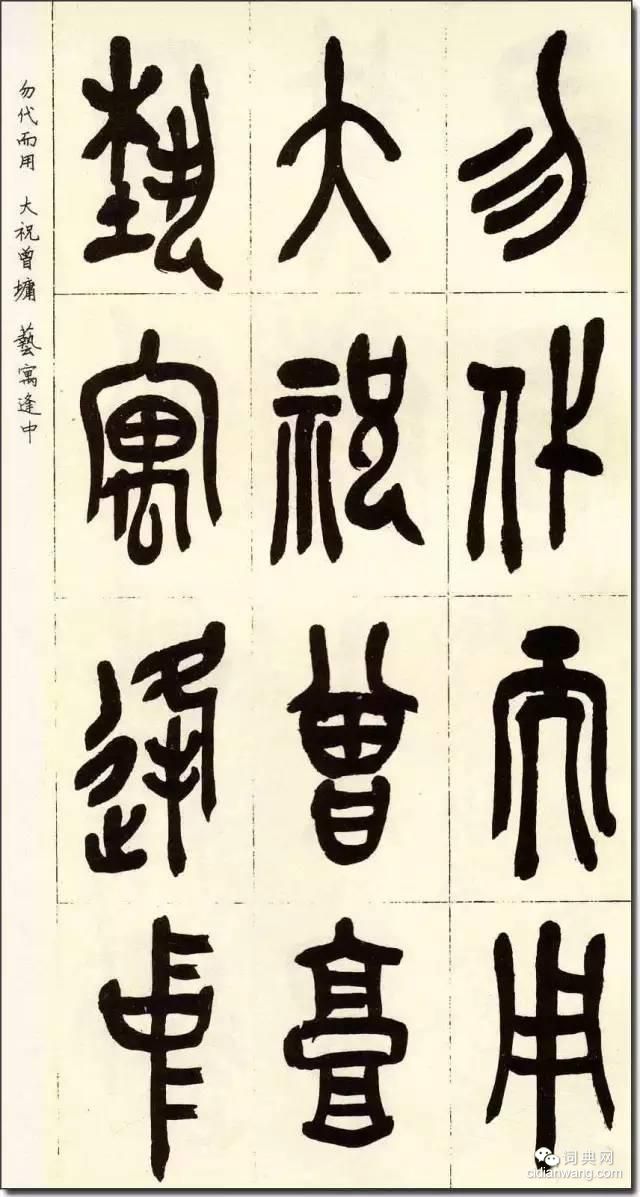 勿代而用
大祝曾墉
藝寓逢中
勿代而用 大祝曾墉 藝寓逢中
词典网
cidianwang.com